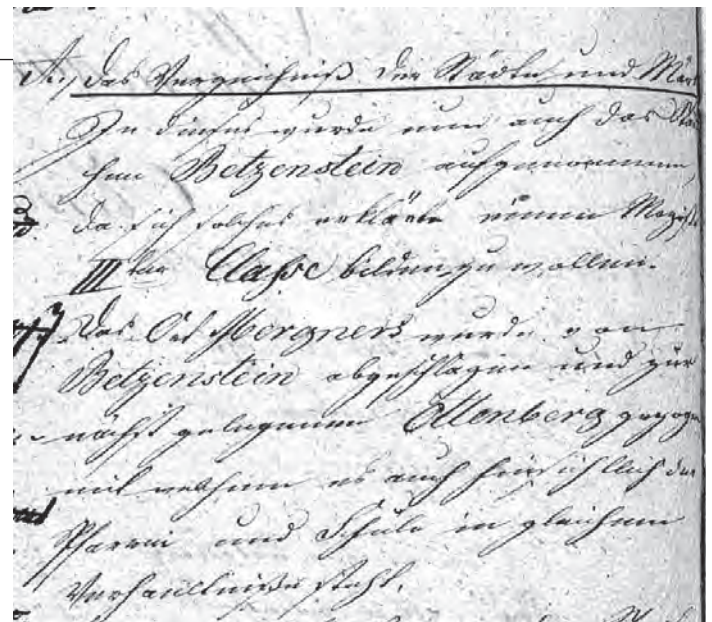 A., Das Verzeichniß der Städte und Mär
In dieses wurde nun auch das Städ
chen Betzenstein aufgenommen,
da sich solches erklärte einen Magist
IIIter Classe bilden zu wollen.
Das Ort Mergners wurde von
Betzenstein abgeschlagen und zur
nächst gelegenen Ottenberg gezogen
mit welchem es auch hinsichtlich der
Pfarrei und Schule in gleichem
Verhältniße steht.